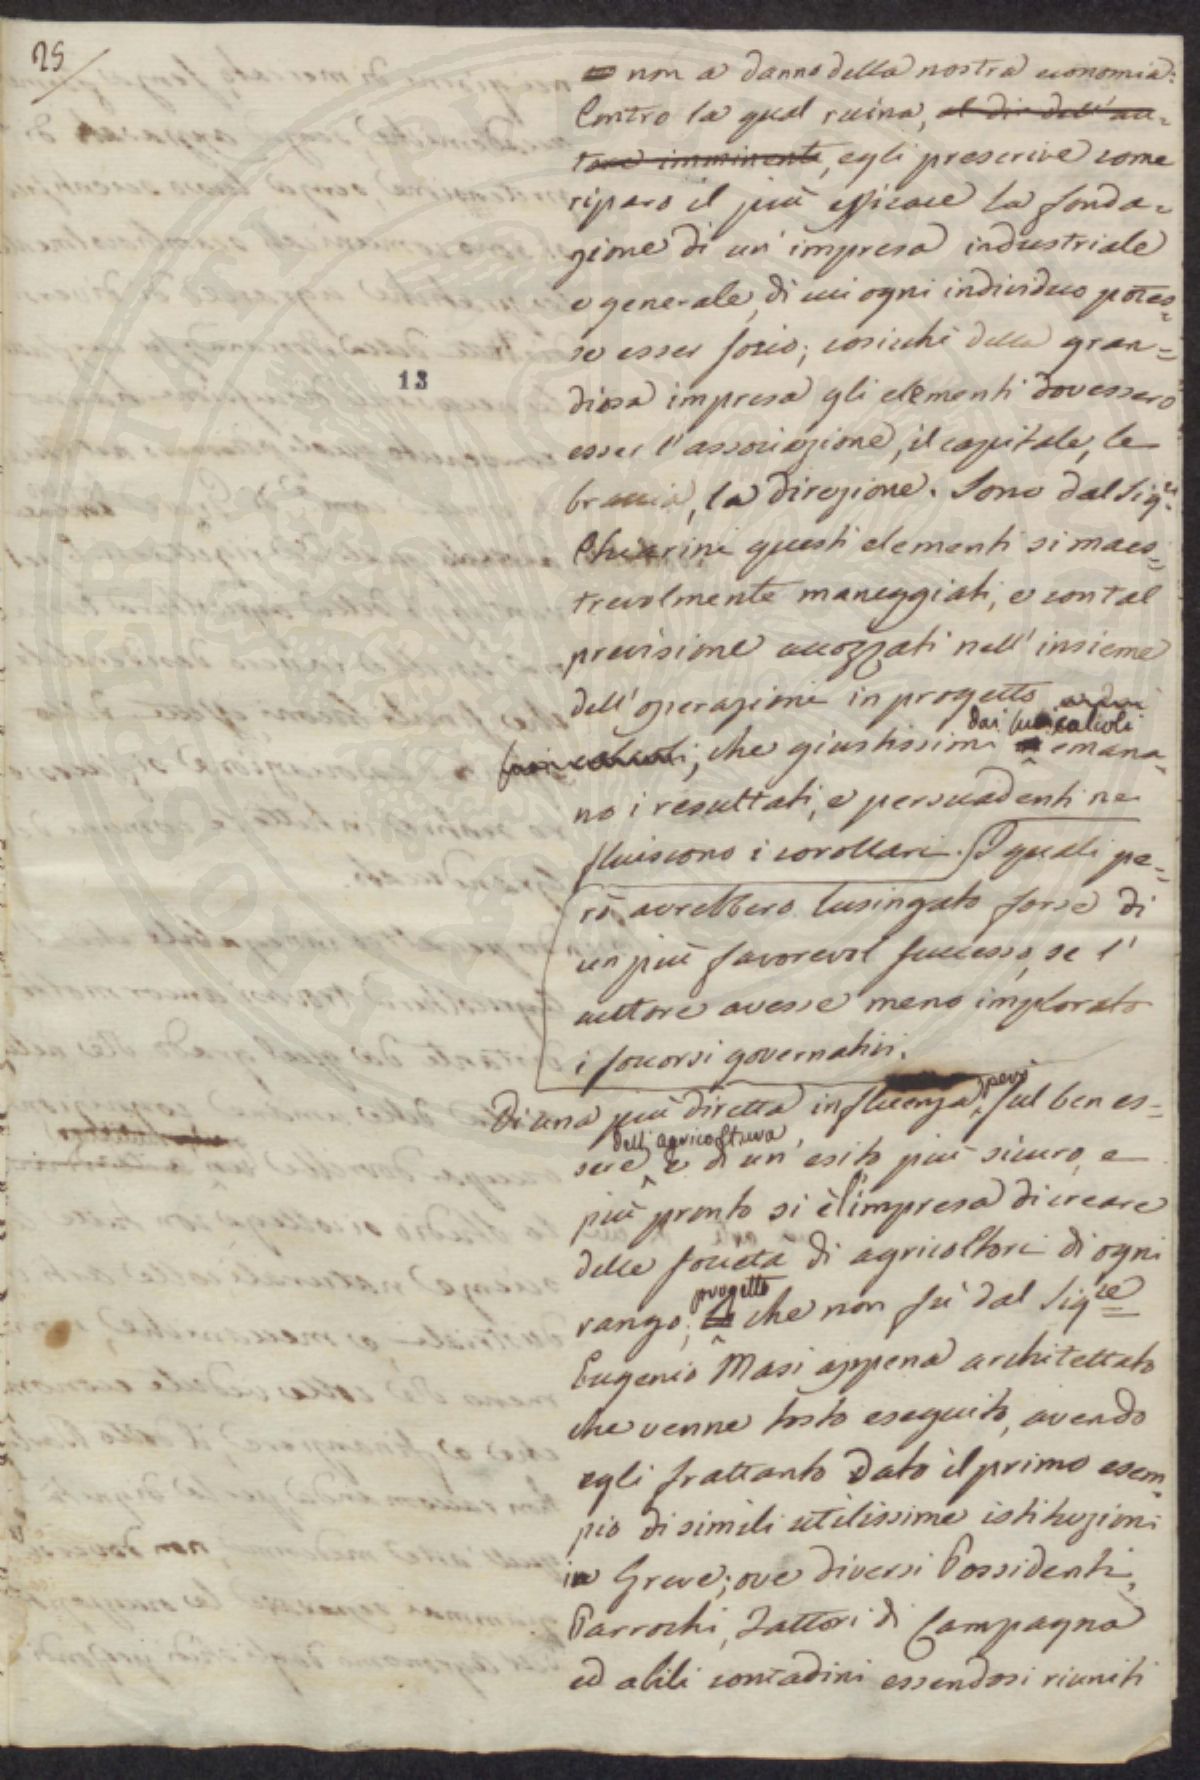 25
non a danno della nostra economia:
Contro la qual ruina, al dir dell'au-
tore imminente, egli prescrive come
riparo il più efficace la fonda-
zione di un'impresa industriale
e generale, di cui ogni individuo potes-
se esser socio; cosicchè della gran-
13
diosa impresa gli elementi dovessero
esser l'associazione, il capitale, le
braccia, la direzione. Sono dal Sigre
Chiarini questi elementi sì maes-
trevolmente maneggiati, e con tal
previsione accozzati nell'insieme
dell'operazioni in progetto
dai suoi calcoli
; che giustissimi emana-
no i resultati, e persuadenti ne
fluiscono i corollari. I quali pe-
rò avrebbero lusingato forse di
un più favorevol successo, se l'
autore avesse meno implorato
i soccorsi governativi.
però
Di una più diretta influenza sul ben es-
dell'agricoltura,
sere e di un'esito più sicuro, e
più pronto si è l'impresa di creare
delle società di agricoltori di ogni
progetto
rango; che non fù dal Sigre
Eugenio Masi appena architettato
che venne tosto eseguito, avendo
egli frattanto dato il primo esem-
pio di simili utilissime istituzioni
in Greve; ove diversi Possidenti,
Parrochi, Fattori di Campagna
ed abili contadini essendosi riuniti